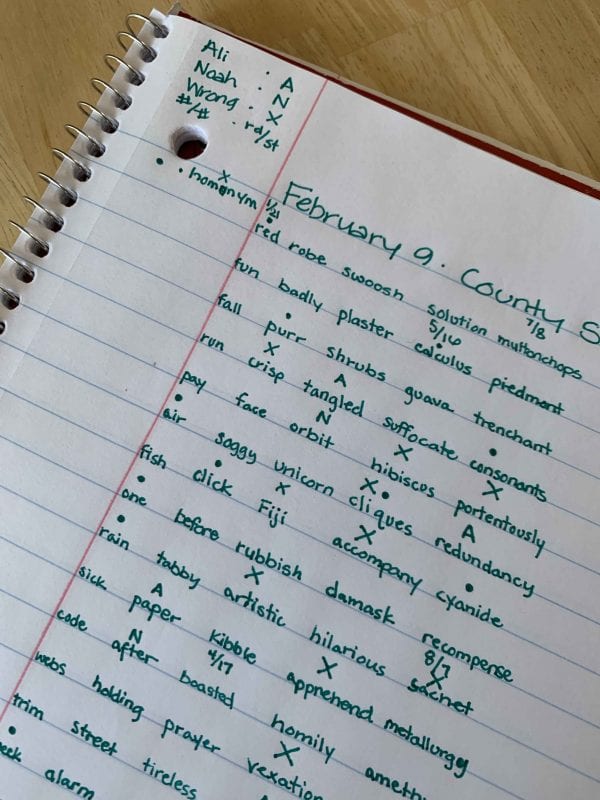 Ali . A
Noah . N
Wrong . X
#/# . rd/st
X
• . homonym
February 9. County S
1/21 7/8
red robe swoosh solution muttonchops
5/16
fun badly plaster calculus piedmont
fall purr shrubs guava trenchant
X A
run crisp tangled suffocate consonants
N X X
pay face orbit hibiscus portentously
X A
air soggy unicorn cliques redundancy
X X
fish click Fiji accompany cyanide
one before rubbish damask recompense
X 8/7 X
rain tabby artistic hilarious sachet
A X
sick paper kibble apprehend metallurgy
N 4/17
code after boasted homily ameth
X
webs holding prayer vexation
trim street tireless
eek alarm